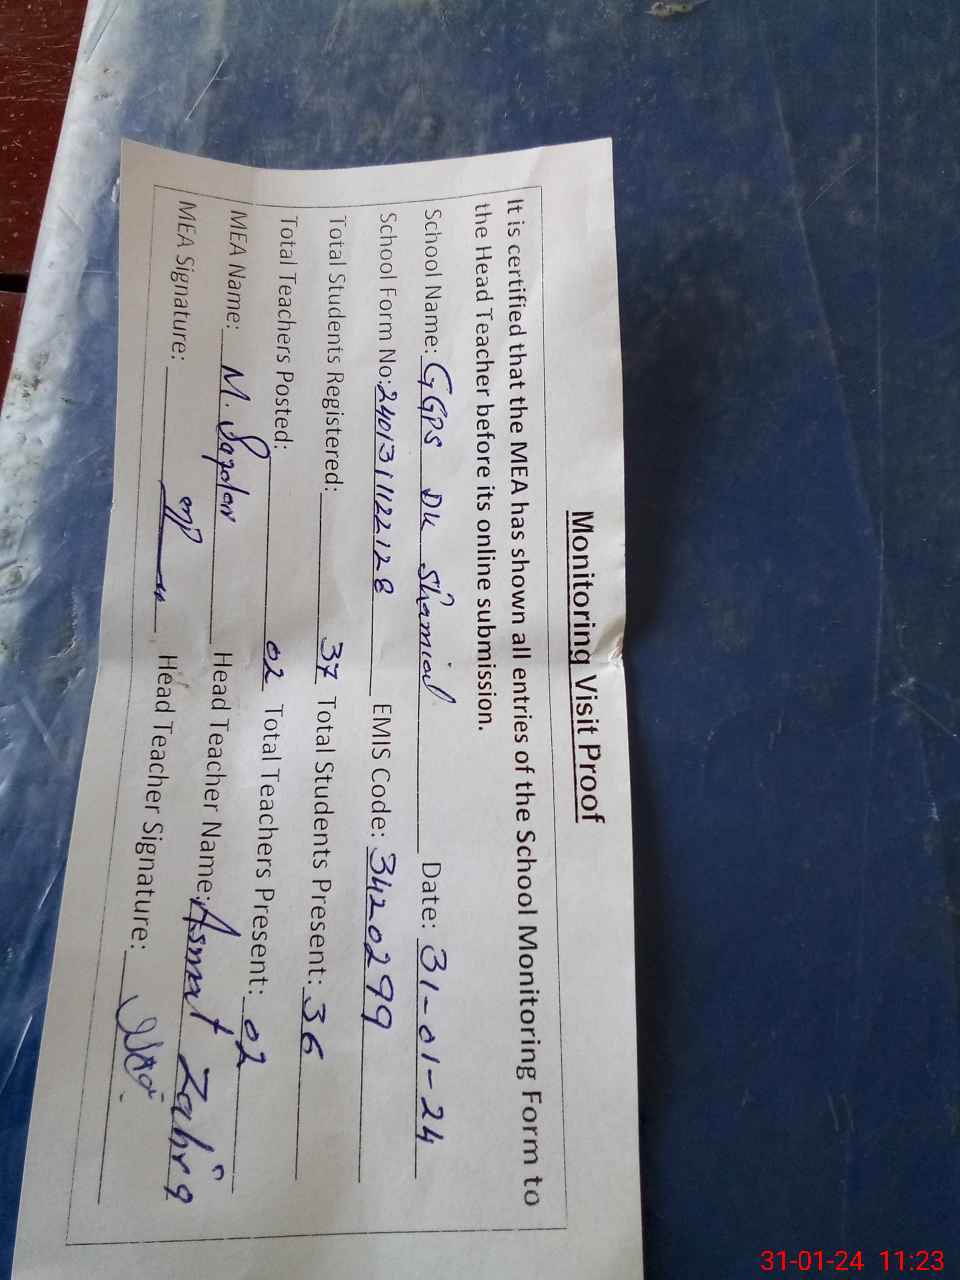 Monitoring Visit Proof
It is certified that the MEA has shown all entries of the School Monitoring Form to
the Head Teacher before its online submission.
School Name: GGPS Dk Shamial Date: 31-01-24
School Form No: 2401311122128 EMIS Code: 3420299
Total Students Registered: 37 Total Students Present: 36
Total Teachers Posted: 02 Total Teachers Present: 02
MEA Name: M. Head Teacher Name: Asmat Zahra
MEA Signature: Head Teacher Signature:
31-01-24 11:23